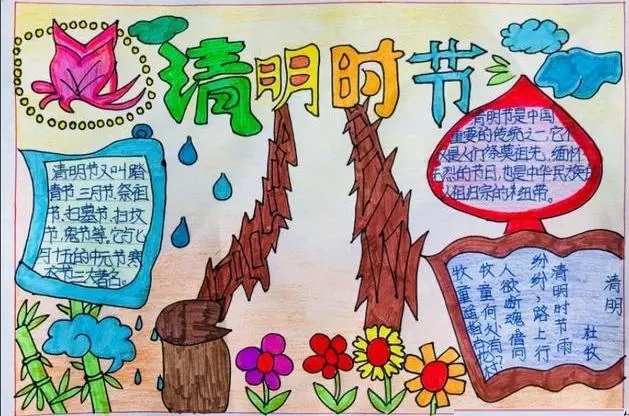 清明时节
清明节又叫踏
青节三月节.祭祖
节,扫墓节.扫坟
节,鬼节等。它与七
月十五的中元节寒
节三大著名。
清明节是中国
重要的传统之一,它
是人们祭奠祖先,缅怀
烈的节日,也是中华民族
祖归宗的纽带。
清明
杜牧
清明时节雨
纷纷,路上行
人欲断魂借问
牧童何处有?
牧童遥指杏花村